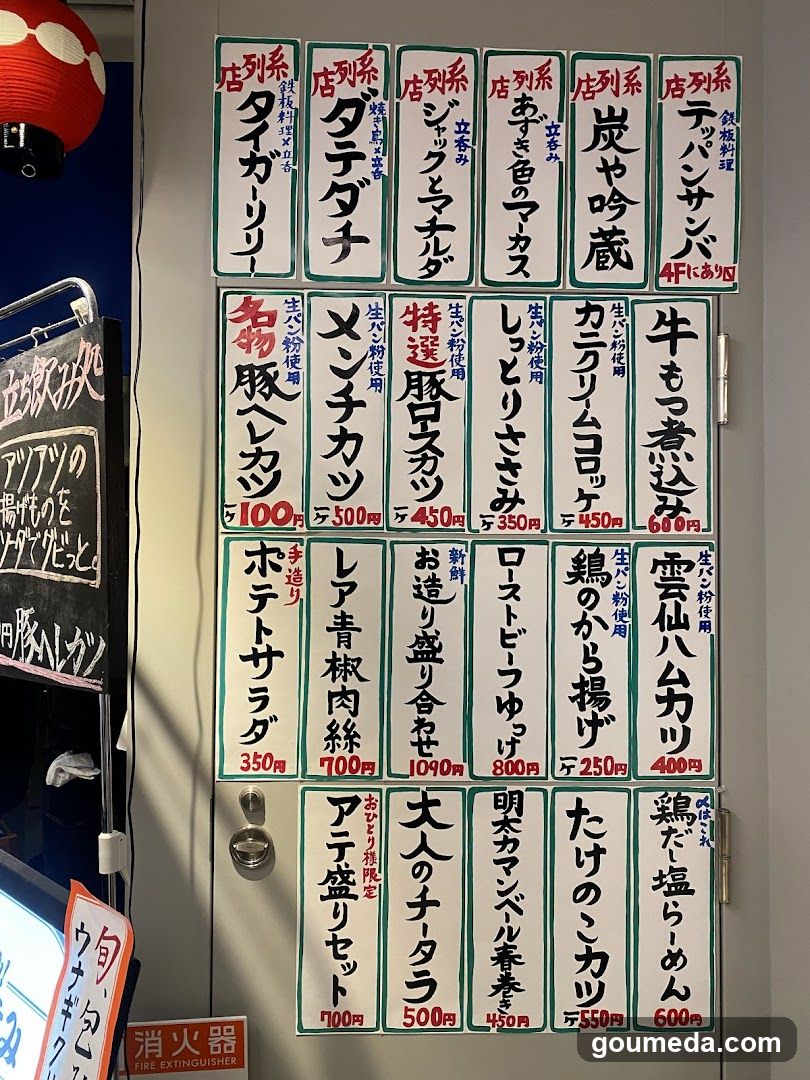 系列店
鉄板料理
テッパンサンバ
4Fにあり
系列店
炭や吟蔵
系列店
立呑み
あずき色のマーカス
系列店
立呑み
ジャックとマチルダ
系列店
焼き鳥×立呑
ダテダチ
系列店
鉄板料理×立呑
タイガーリリー
牛もつ煮込み
600円
生パン粉使用
カニクリームコロッケ
一ケ450円
生パン粉使用
しっとりささみ
一ケ350円
特選
生パン粉使用
豚ロースカツ
一ケ450円
生パン粉使用
メンチカツ
一ケ500円
名物
生パン粉使用
豚ヘレカツ
一ケ100円
生パン粉使用
雲仙ハムカツ
400円
生パン粉使用
鶏のから揚げ
一ケ250円
ローストビーフゆっけ
800円
新鮮
お造り盛り合わせ
1090円
レア青椒肉絲
700円
手造り
ポテトサラダ
350円
〆はこれ
鶏だし塩らーめん
600円
たけのこカツ
一ケ550円
明太カマンベール春巻き
450円
大人のチータラ
500円
おひとり様限定
アテ盛りセット
700円
立ち飲み処
アツアツの
揚げものを
ソーダでグビっと。
円豚ヘレカツ
旬、包
ウナギク
消火器
FIRE EXTINGUISHER
goumeda.com